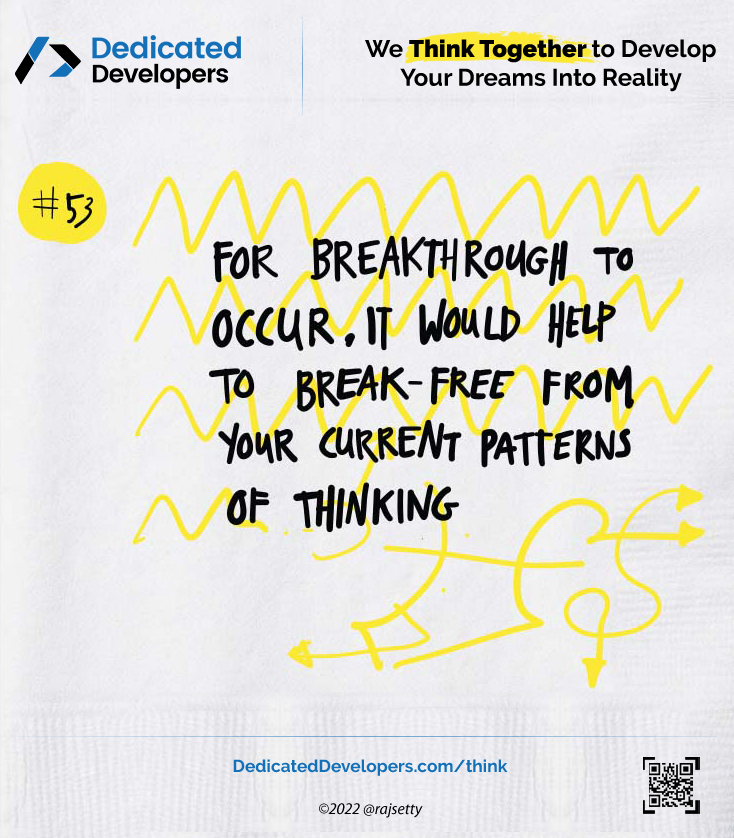 Dedicated
Developers
We Think Together to Develop
Your Dreams Into Reality
#53
FOR BREAKTHROUGH TO
OCCUR, IT WOULD HELP
TO BREAK-FREE FROM
YOUR CURRENT PATTERNS
OF THINKING
DedicatedDevelopers.com/think
©2022 @rajsetty